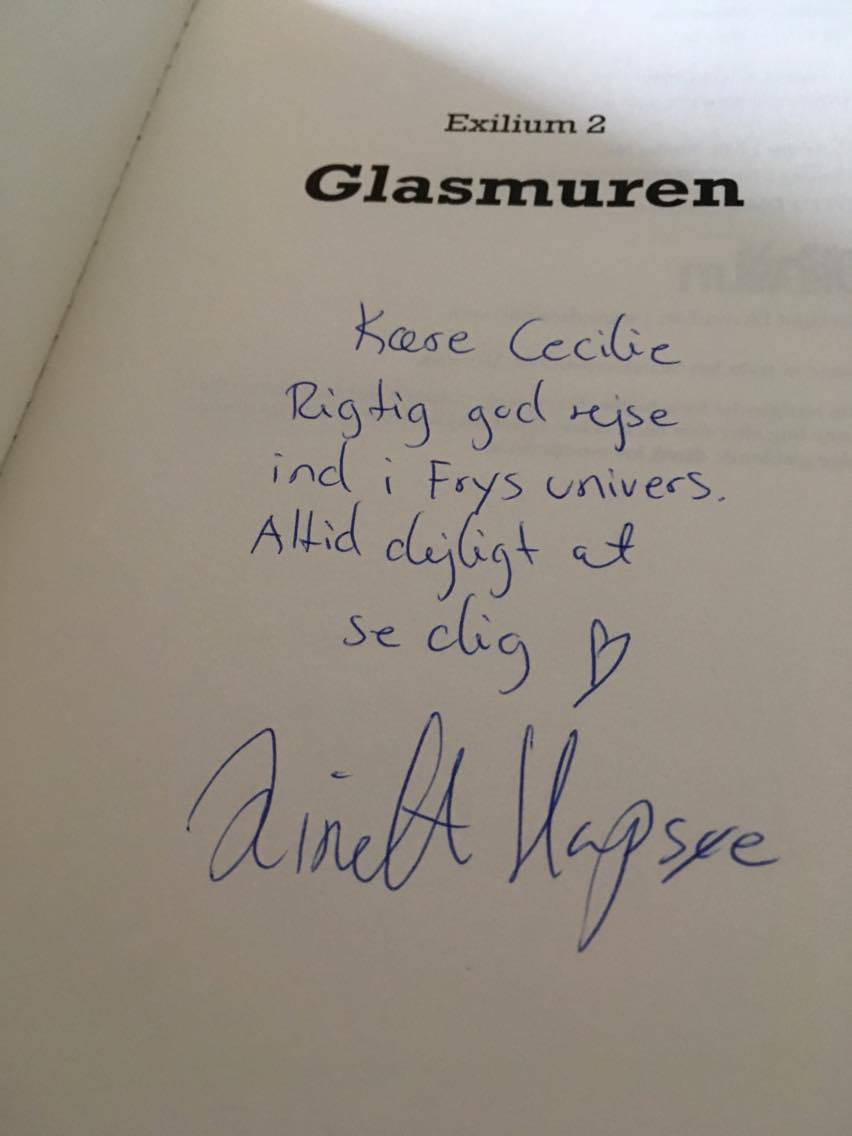 Exilium 2
Glasmuren
Kære Cecilie
Rigtig god rejse
ind i Frys univers.
Altid dejligt at
se dig